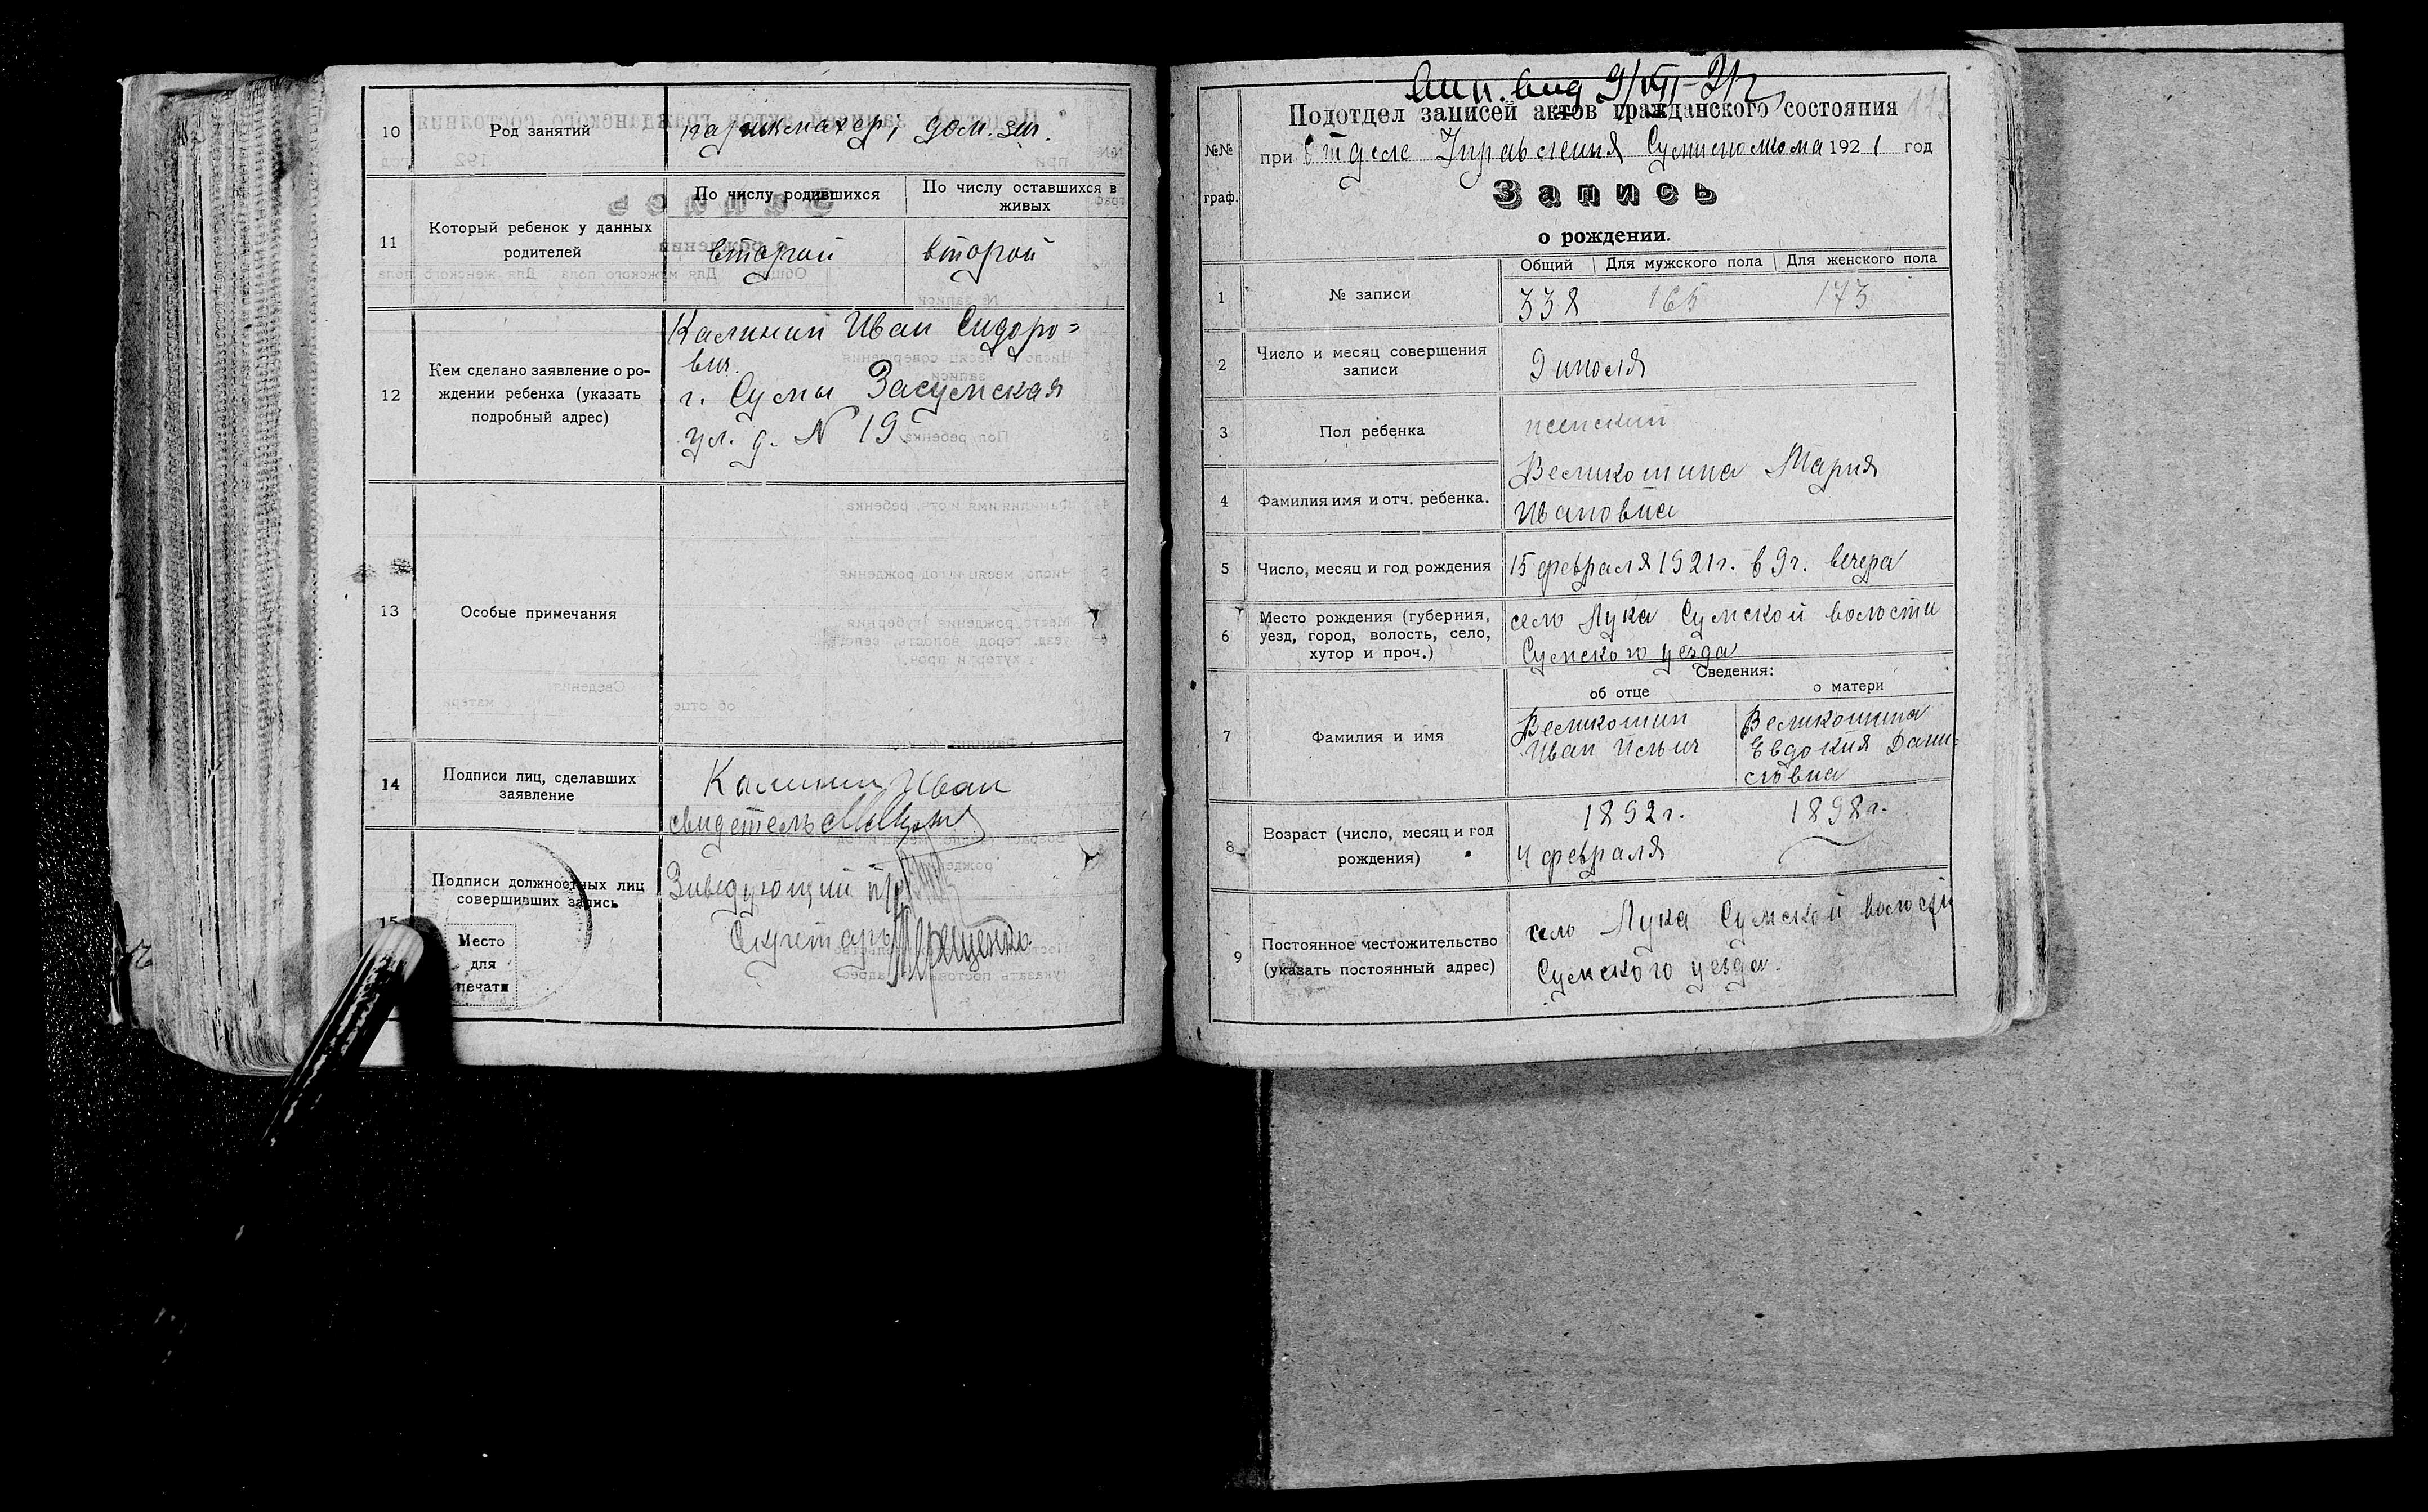 10 Род занятий парикмахер, дом. хоз.
11 Который ребенок у данных родителей
По числу родившихся По числу оставшихся в живых
второй второй
12 Кем сделано заявление о ро-
ждении ребенка (указать
подробный адрес)
Калинин Иван Сидоро=
вич.
г. Сумы Засумская
ул. д. N 19
13 Особые примечания
14 Подписи лиц, сделавших
заявление
Калинин Иван
свидетель
15 Подписи должностных лиц
совершивших запись
Место
для
печати
Заведующий
Секретарь
Вып. вид 9/VII-21г
Подотдел записей актов гражданского состояния
№№ граф.
при Отделе Управления Сумисполкома 1921 год
Запись
о рождении.
Общий Для мужского пола Для женского пола
1 № записи 338 165 173
2 Число и месяц совершения
записи
9 июля
3 Пол ребенка женский
4 Фамилия имя и отч. ребенка.
Великошина Мария
Ивановна
5 Число, месяц и год рождения 15 февраля 1921г. в 9ч. вечера
6 Место рождения (губерния,
уезд, город, волость, село,
хутор и проч.)
село Лука Сумской волости
Сумского уезда
Сведения:
об отце о матери
7 Фамилия и имя
Великошин
Иван Ильич
Великошина
Евдокия Дани=
ловна
8 Возраст (число, месяц и год
рождения)
1892г. 1898г.
4 февраля
9 Постоянное местожительство
(указать постоянный адрес)
село Лука Сумской волости
Сумского уезда.